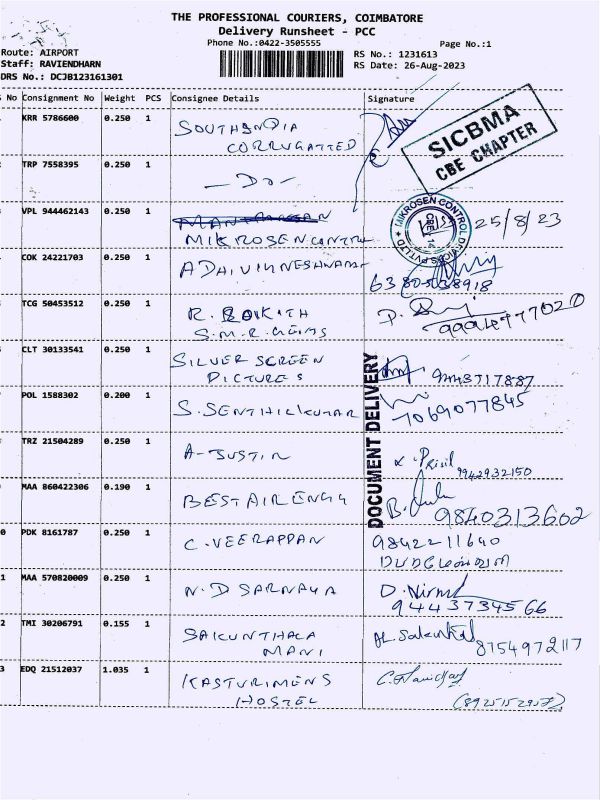 THE PROFESSIONAL COURIERS, COIMBATORE
Delivery Runsheet - PCC
Phone No.:0422-3505555
Page No.:1
Route: AIRPORT
Staff: RAVIENDHARN
DRS No.: DCJB123161301
RS No.: 1231613
RS Date: 26-Aug-2023
No Consignment No Weight PCS Consignee Details Signature
KRR 5786600 0.250 1 SOUTHINDIA
CORRUGATTED
SICBMA
CBE CHAPTER
TRP 7558395 0.250 1 - Do -
VPL 944462143 0.250 1
MIKROSEN CONTRO
MIKROSEN CONTROL DEVICES PVT LTD
CBE 14
25/8/23
COK 24221703 0.250 1 6380538918
TCG 50453512 0.250 1 R.
S.M.R. GEMS
P. 9994777020
CLT 30133541 0.250 1 SILVER SCREEN
PICTURES
9443717887
DOCUMENT DELIVERY
POL 1588302 0.200 1 S. SENTHILKUMAR 7069077845
TRZ 21504289 0.250 1 A-JUSTIN 9942932150
MAA 860422306 0.190 1 BESTAIRENGG B. 9840313602
0 PDK 8161787 0.250 1 C. VEERAPPAN 9842211640
1 MAA 570820009 0.250 1 N.D SARNAYA D. Nirml
9443734566
2 TMI 30206791 0.155 1 SAKUNTHALA
MANI
8754972117
3 EDQ 21512037 1.035 1 KASTURIMENS
HOSTEL